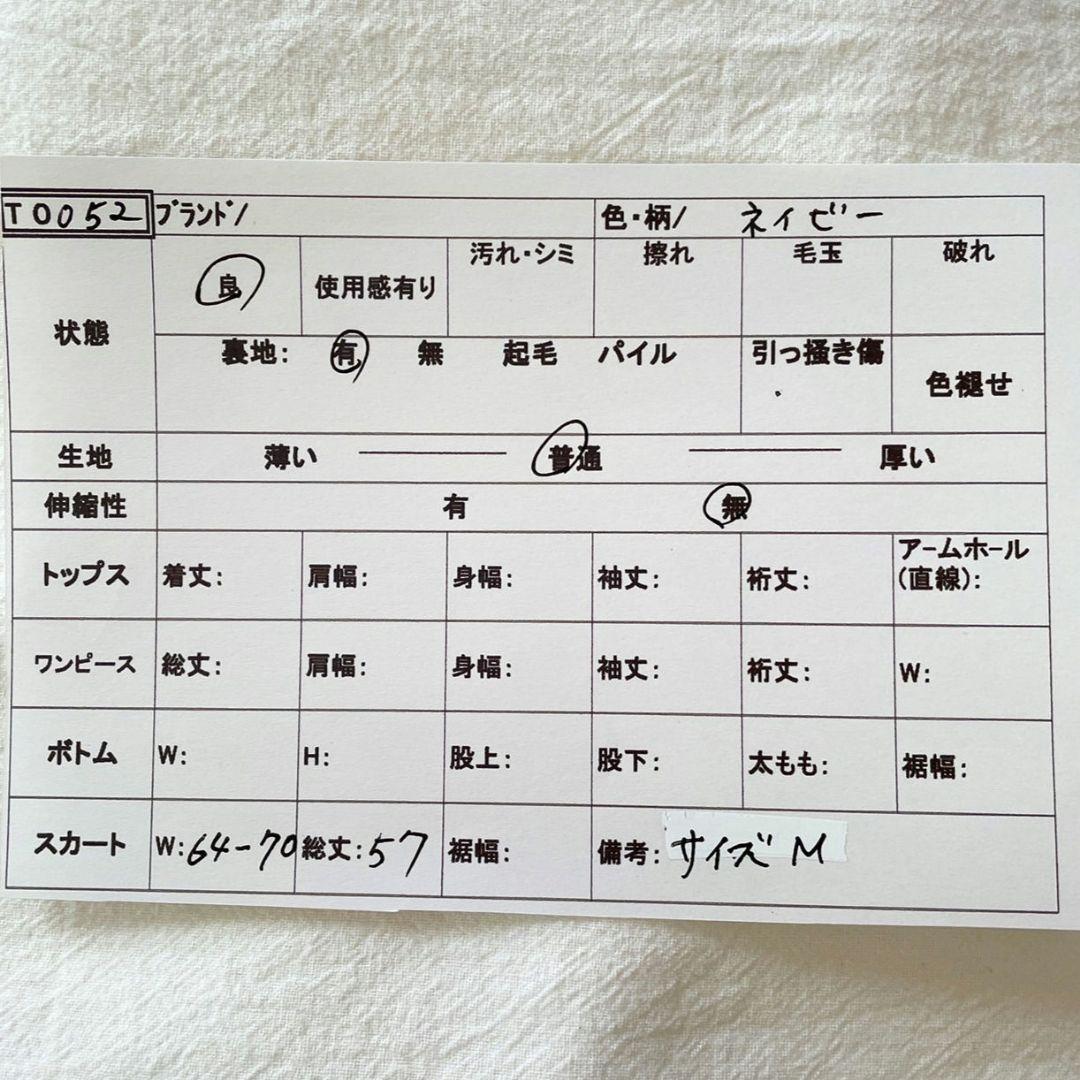 T0052 ブランド/ 色・柄/ ネイビー
状態 良 使用感有り 汚れ・シミ 擦れ 毛玉 破れ
裏地: 有 無 起毛 パイル 引っ掻き傷 色褪せ
生地 薄い 普通 厚い
伸縮性 有 無
トップス 着丈: 肩幅: 身幅: 袖丈: 裄丈: アームホール(直線):
ワンピース 総丈: 肩幅: 身幅: 袖丈: 裄丈: W:
ボトム W: H: 股上: 股下: 太もも: 裾幅:
スカート W:64-70 総丈:57 裾幅: 備考: サイズ M